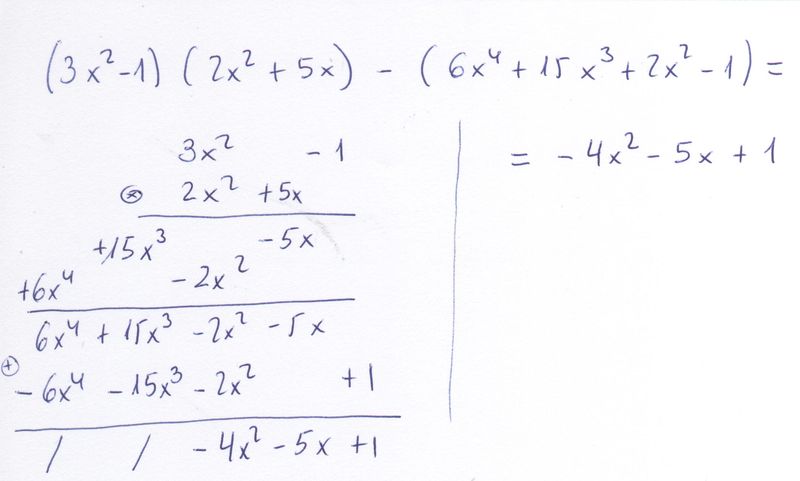 (3x²-1) (2x² + 5x) - (6x⁴ + 15x³ + 2x² - 1) =
= -4x² - 5x + 1
3x² - 1
⊗ 2x² + 5x
+15x³ - 5x
+6x⁴ - 2x²
6x⁴ + 15x³ - 2x² - 5x
⊕ - 6x⁴ - 15x³ - 2x² + 1
/ / - 4x² - 5x + 1